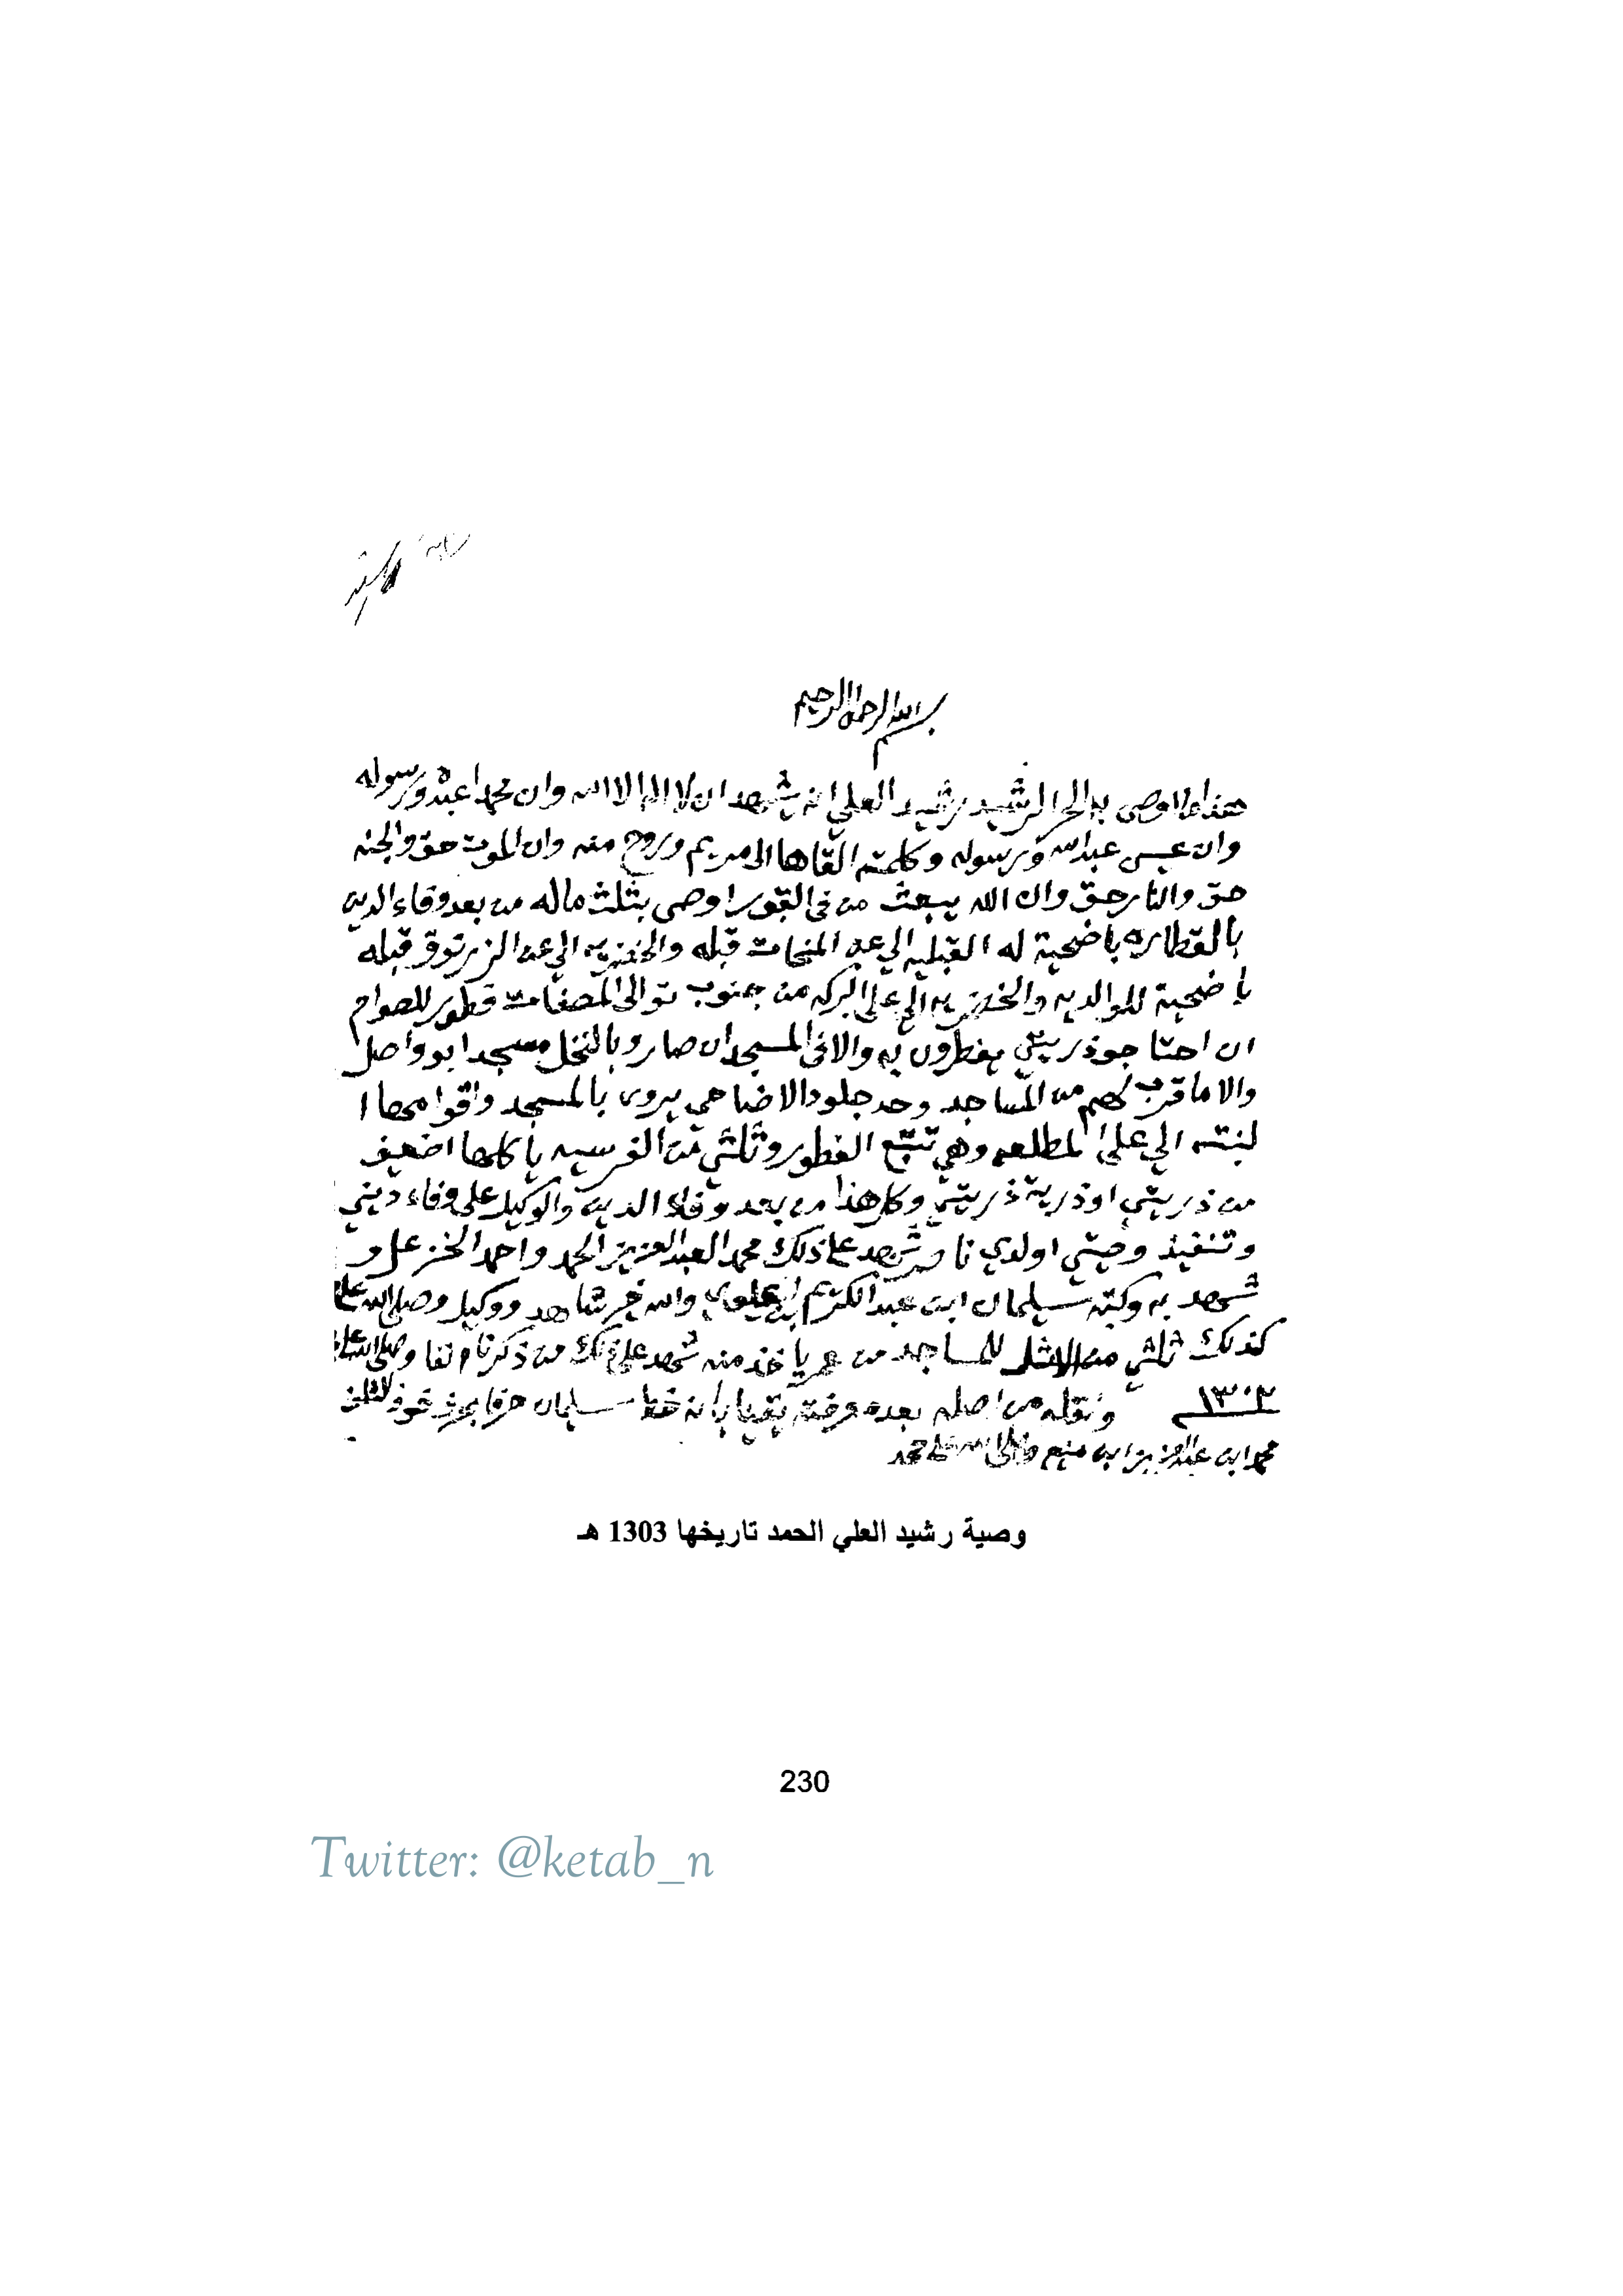 بسم الله الرحمن الرحيم
هذا ما اوصى به الحر الرشيد رشيد العلي انه يشهد ان لا اله الا الله وان محمدا عبده ورسوله
وان عيسى عبد الله ورسوله وكلمته القاها الى مريم وروح منه وان الموت حق والجنه
حق والنار حق وان الله يبعث من في القبور اوصى بثلث ماله من بعد وفاء الدين
بالقطاره باضحية له القبليه الي عن قبله والخضريه الي عن قبله
باضحية للوالدين والخضريه الي على البركه من جنوب فطور للصوام
ان احتاجو ذريتي يفطرون به والا في المسجد ان صارو بالنخل مسجد ابو واصل
والا ما قرب لهم من المساجد وحد جلود الاضاحي يروى بالمسجد
الي على المطلعه وهي تتبع الفطور وثلثي من الفرسيه ياكلها اضعيف
من ذريتي او ذرية ذريتي وكل هذا من بعد وفاء الدين والوكيل على وفاء ديني
وتنفيذ وصيتي اولدي شهد على ذلك محمد العبد العزيز الحمد واحمد الخزعل و
شهد به وكتبه سليمان ابن عبد الكريم والله خير شاهد ووكيل وصلى الله على
كذلك ثلثي من الاثل للمساجد من عمر ياخذ منه شهد على ذلك من ذكرنا انفا وصلى الله على
١٣٠٣ ونقله من اصله بعد معرفته يقينا بانه خط سليمان حرفا بحرف
محمد ابن عبد العزيز ابن منيع وصلى الله على محمد
وصية رشيد العلي الحمد تاريخها 1303 هـ
230
Twitter: @ketab_n